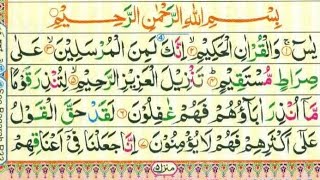 بِسْمِ اللهِ الرَّحْمٰنِ الرَّحِيْمِ
يٰسٓ ۝١ وَالْقُرْاٰنِ الْحَكِيْمِ ۝٢ اِنَّكَ لَمِنَ الْمُرْسَلِيْنَ ۝٣ عَلٰى
صِرَاطٍ مُّسْتَقِيْمٍ ۝٤ تَنْزِيْلَ الْعَزِيْزِ الرَّحِيْمِ ۝٥ لِتُنْذِرَ قَوْمًا
مَّاۤ اُنْذِرَ اٰبَاۤؤُهُمْ فَهُمْ غٰفِلُوْنَ ۝٦ لَقَدْ حَقَّ الْقَوْلُ
عَلٰۤى اَكْثَرِهِمْ فَهُمْ لَا يُؤْمِنُوْنَ ۝٧ اِنَّا جَعَلْنَا فِيْۤ اَعْنَاقِهِمْ
منزل ٥